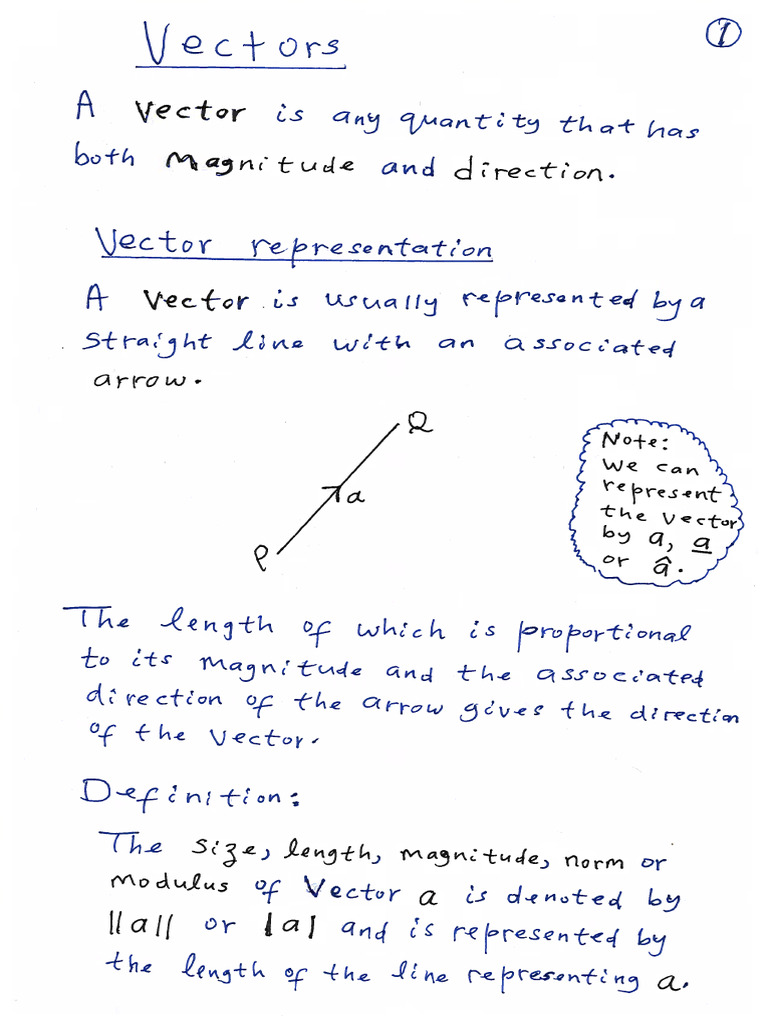 Vectors
1
A vector is any quantity that has
both magnitude and direction.
Vector representation
A vector is usually represented by a
straight line with an associated
arrow.
Q
a
P
Note:
we can
represent
the vector
by a, a̲
or â.
The length of which is proportional
to its magnitude and the associated
direction of the arrow gives the direction
of the vector.
Definition:
The size, length, magnitude, norm or
modulus of vector a is denoted by
||a|| or |a| and is represented by
the length of the line representing a.